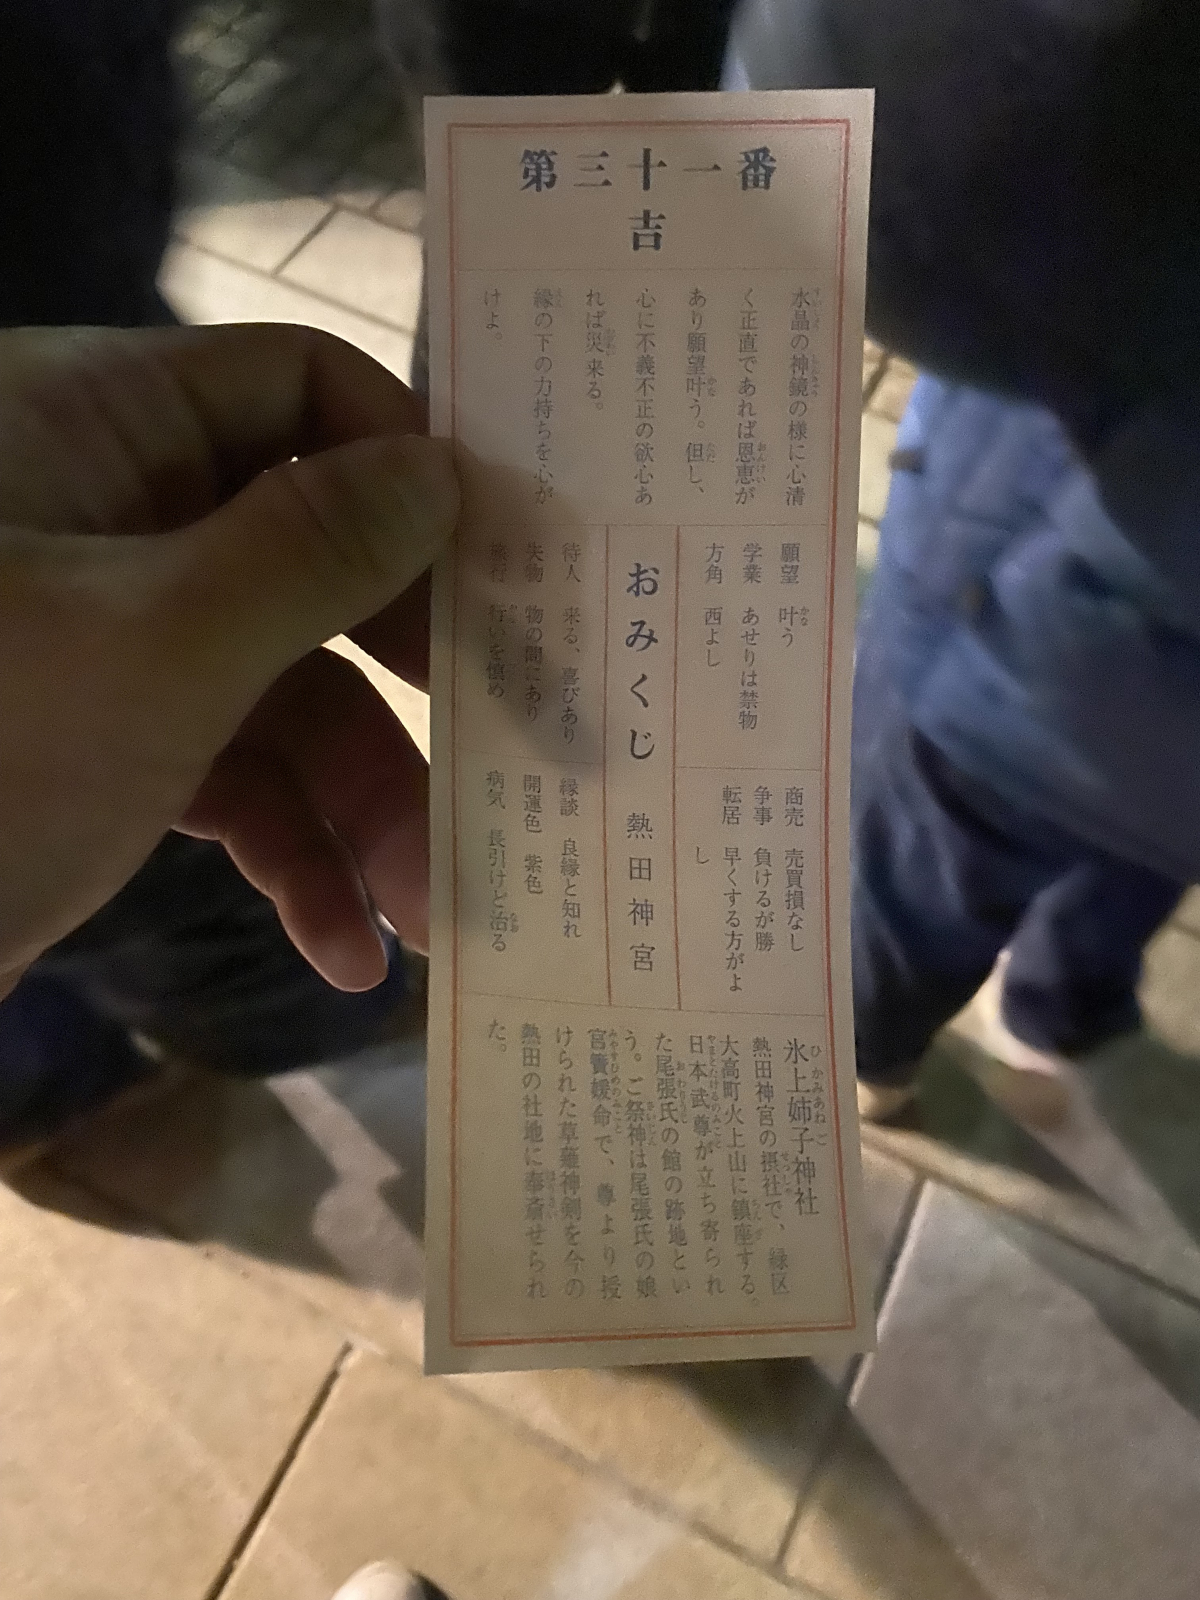 第三十一番
吉
水晶の神鏡の様に心清
く正直であれば恩恵が
あり願望叶う。但し、
心に不義不正の欲心あ
れば災来る。
縁の下の力持ちを心が
けよ。
願望 叶う
学業 あせりは禁物
方角 西よし
商売 売買損なし
争事 負けるが勝
転居 早くする方がよ
し
おみくじ 熱田神宮
待人 来る、喜びあり
失物 物の間にあり
旅行 行いを慎め
縁談 良縁と知れ
開運色 紫色
病気 長引けど治る
氷上姉子神社
熱田神宮の摂社で、緑区
大高町火上山に鎮座する。
日本武尊が立ち寄られ
た尾張氏の館の跡地とい
う。ご祭神は尾張氏の娘
宮簀媛命で、尊より授
けられた草薙神剣を今の
熱田の社地に奉斎せられ
た。